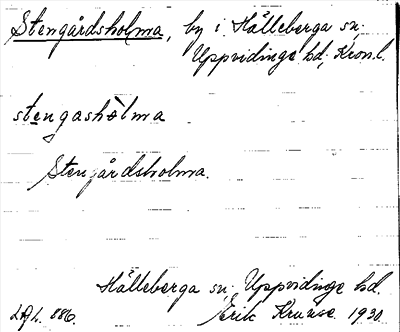 Stengårdsholma, by i Hälleberga sn;
Uppvidinge hd; Kron.l.
stengashòlma
Stengårdsholma.
Hälleberga sn; Uppvidinge hd.
Erik Krause. 1930
886.